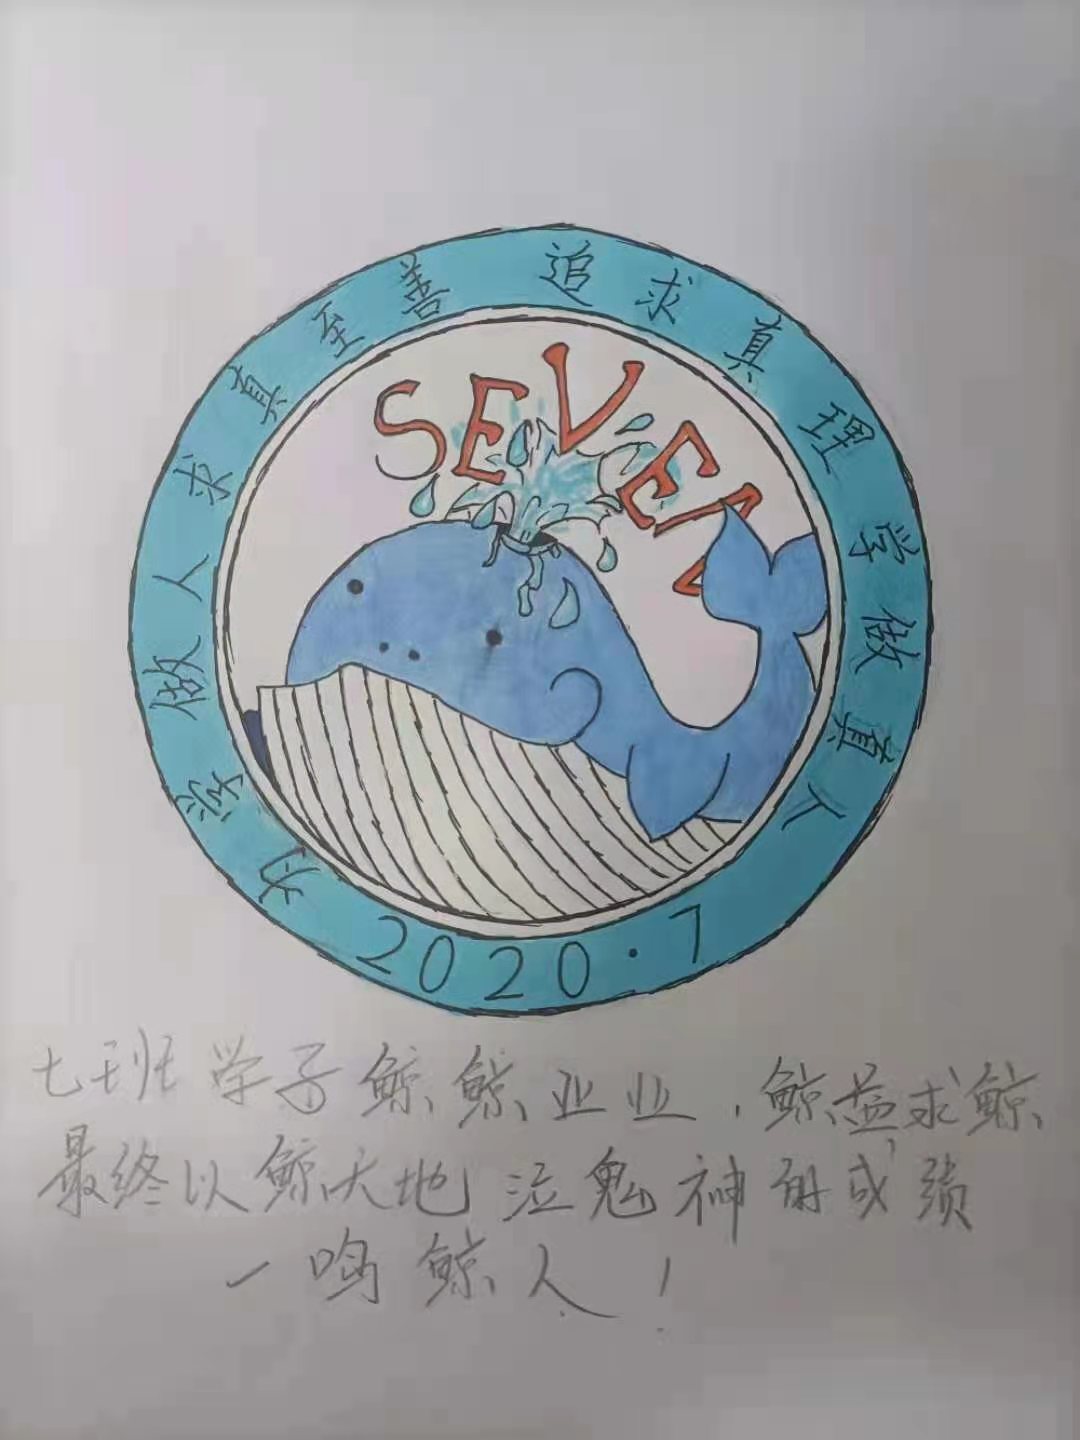 为学做人求真至善 追求真理学做真人
SEVEN
2020·7
七班学子鲸鲸业业,鲸益求鲸
最终以鲸天地 泣鬼神的成绩
一鸣鲸人!